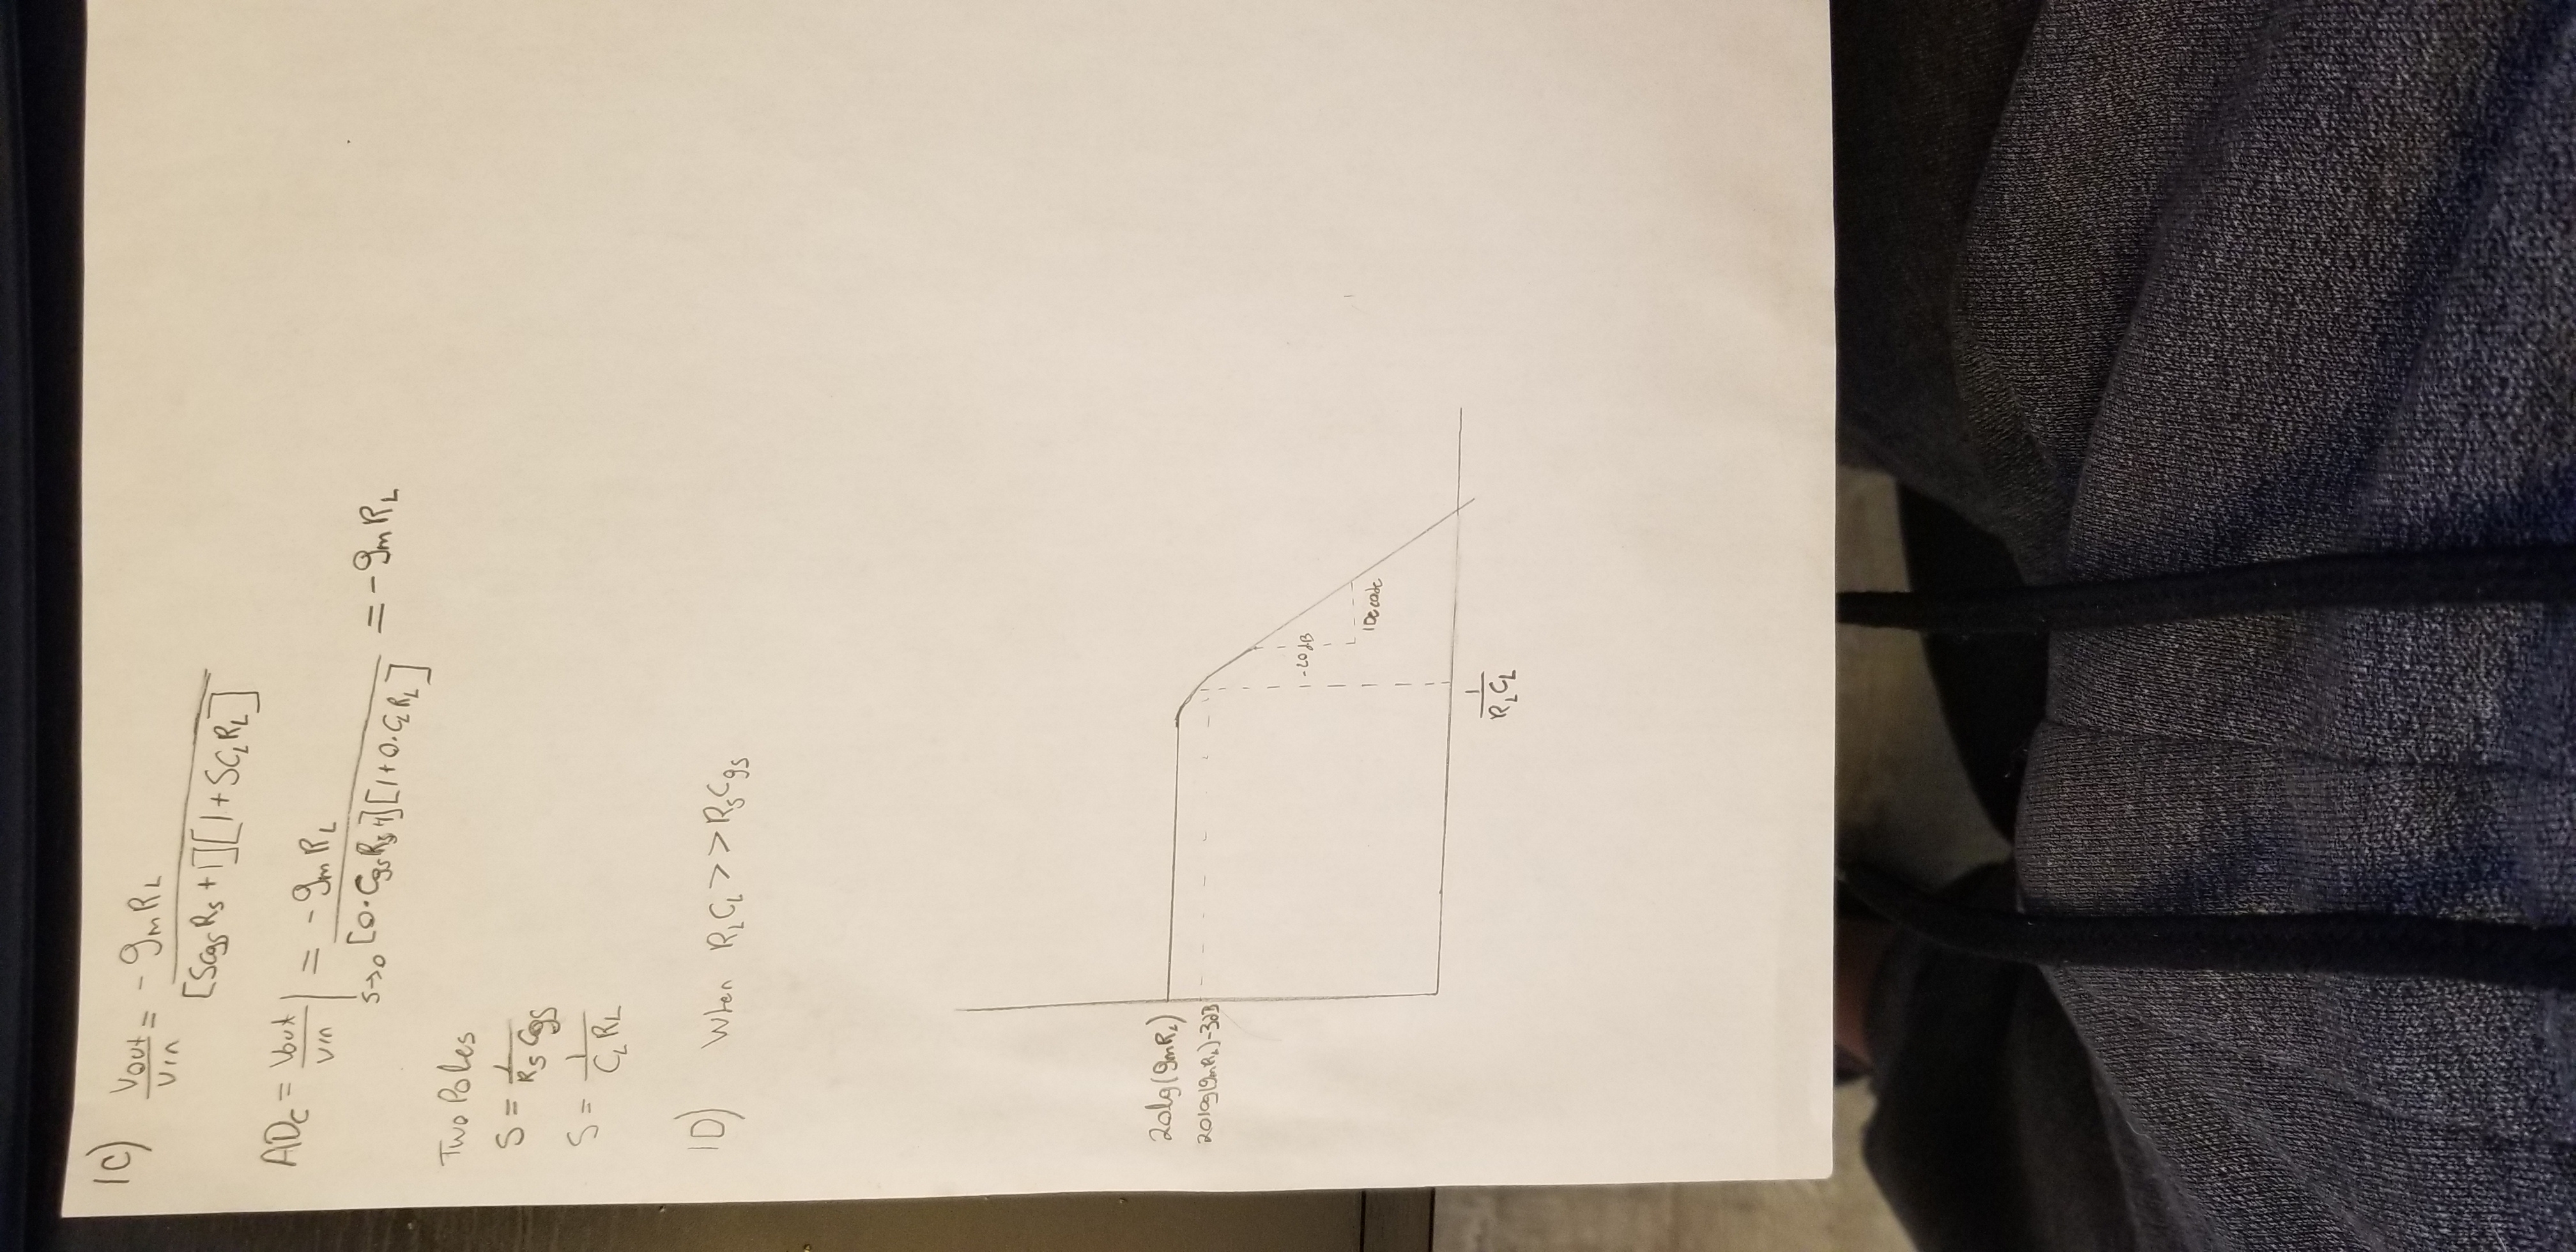 1C) Vout/Vin = -gmRL / [SCgsRs + 1][1 + SCLRL]
ADc = Vout/Vin |s→0 = -gmRL / [0·CgsRs+1][1+0·CLRL] = -gmRL
Two Poles
S = 1/RsCgs
S = 1/CLRL
1D) When RLCL >> RsCgs
20lg(gmRL)
20log(gmRL)-3dB
-20dB
1Decade
1/RLCL